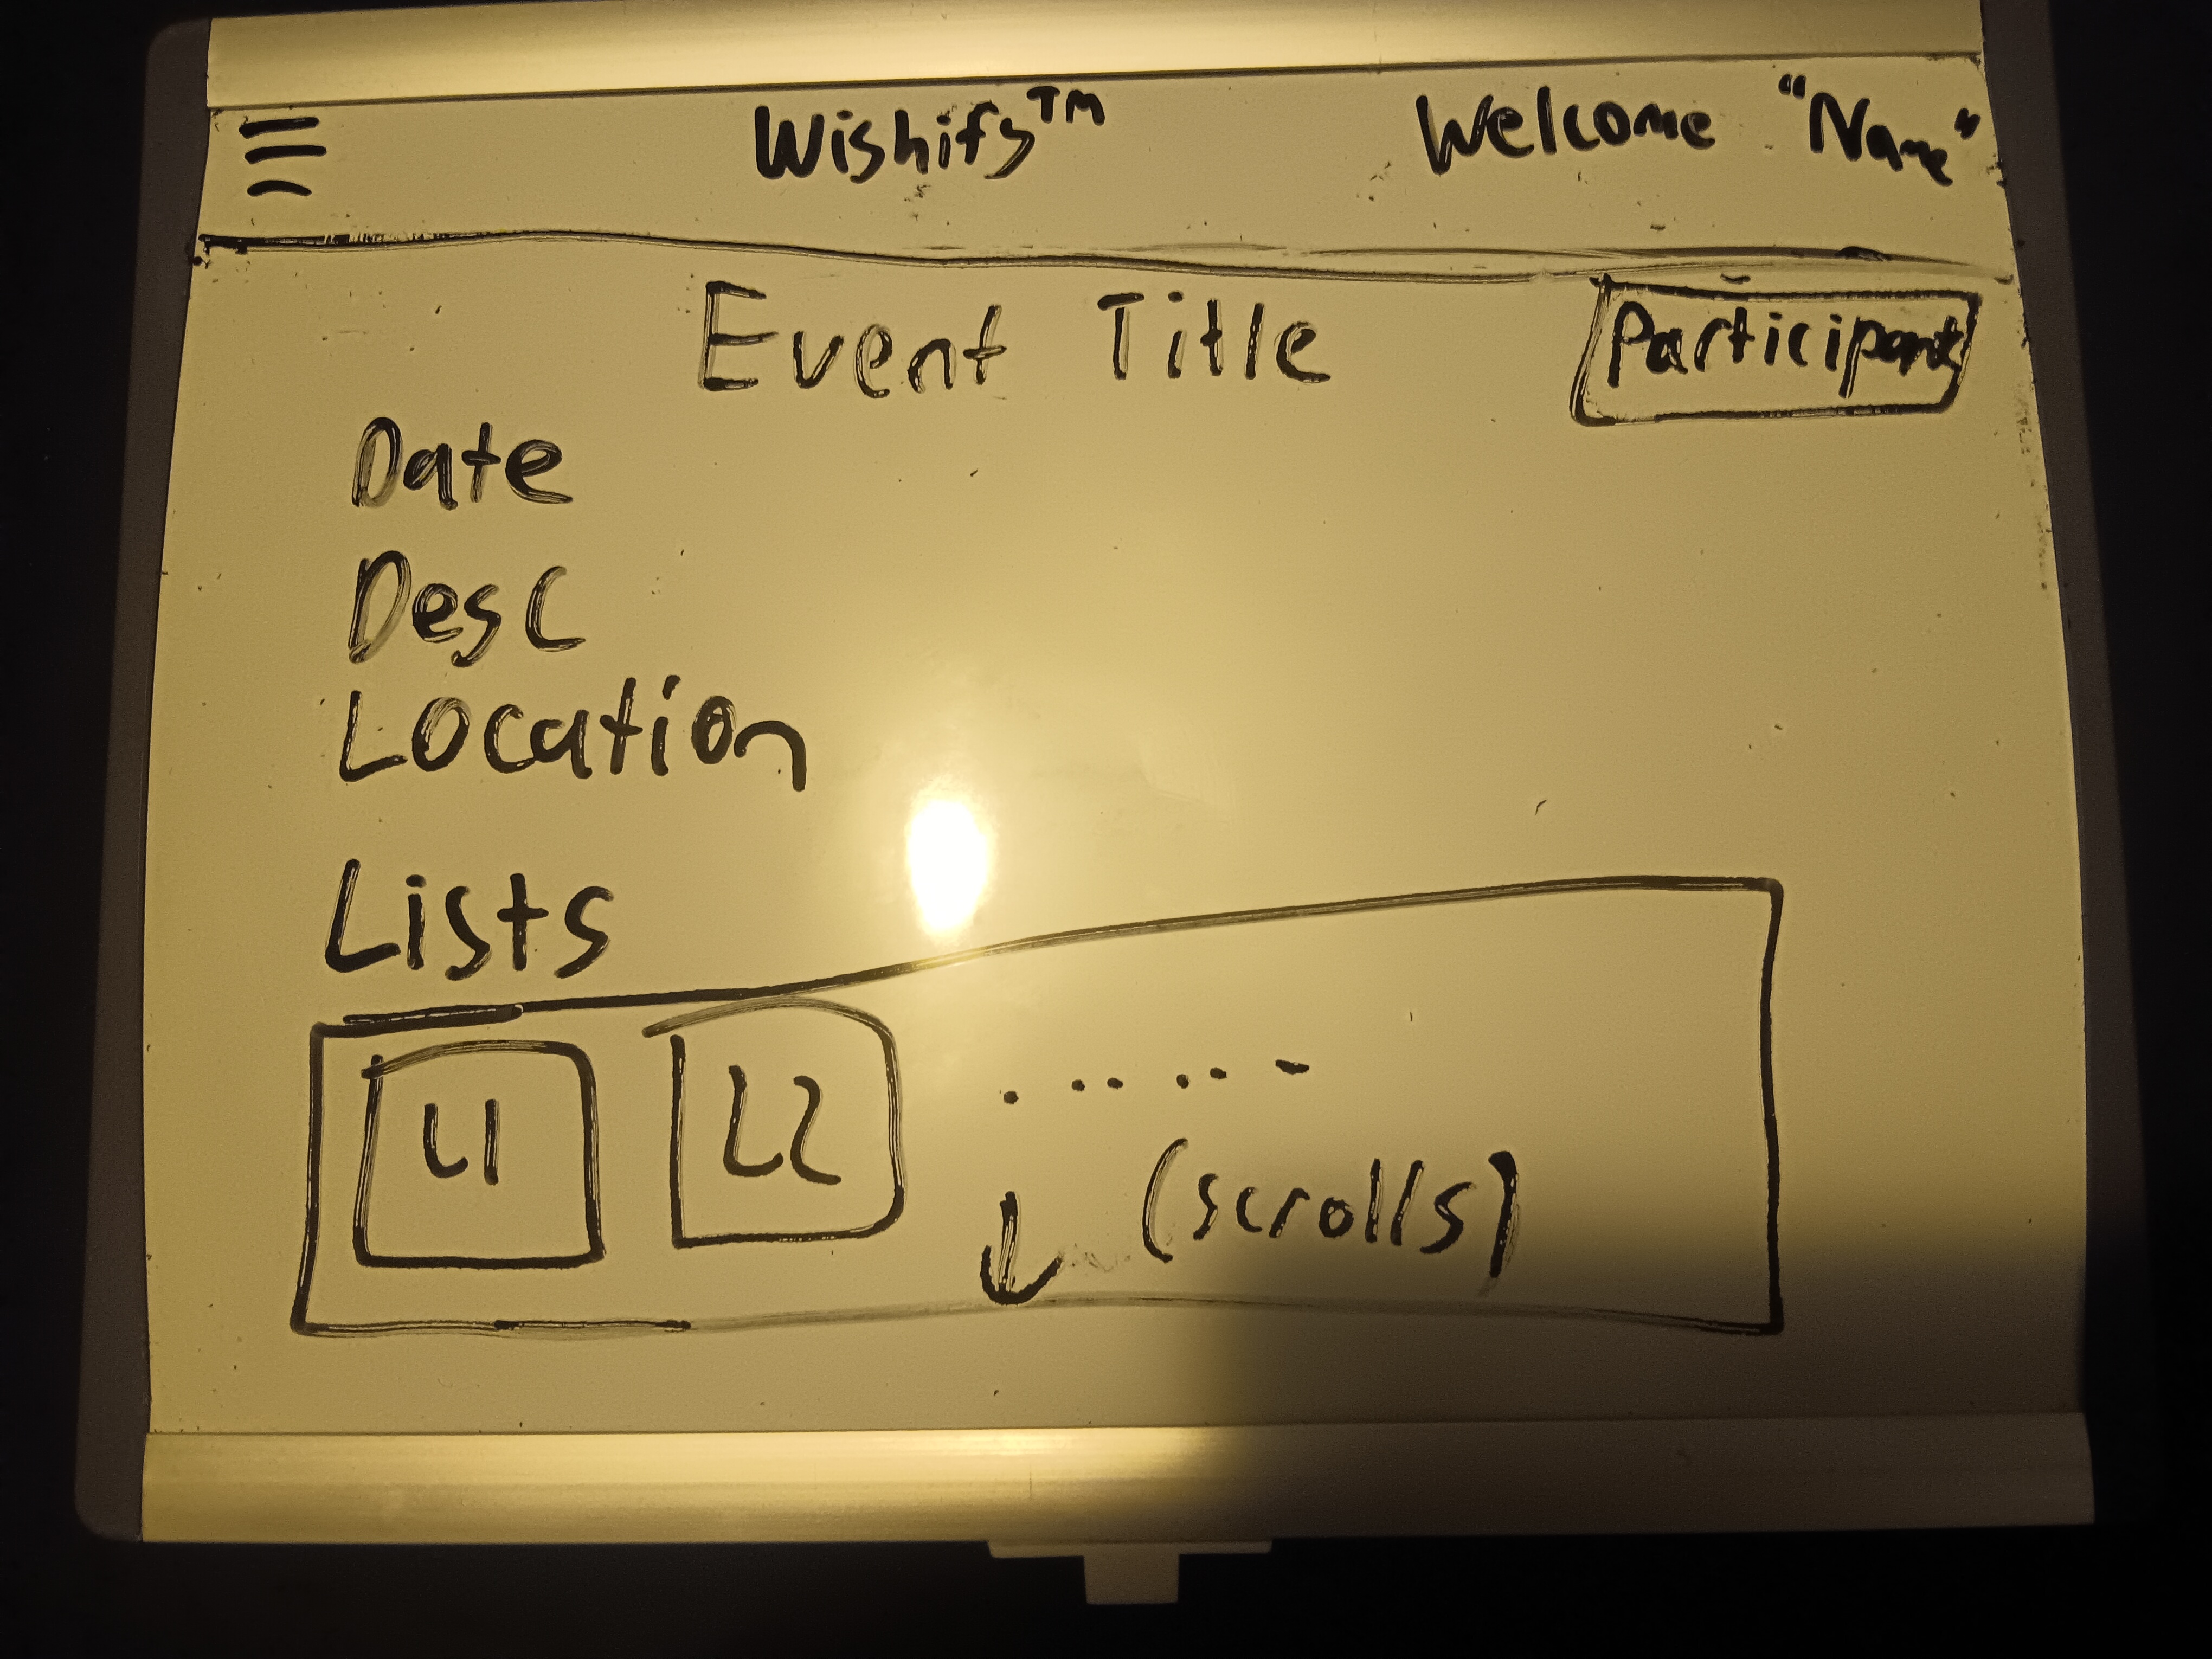 Wishify™ Welcome "Name"
Event Title Participants
Date
Desc
Location
Lists
L1 L2 ......
(scrolls)